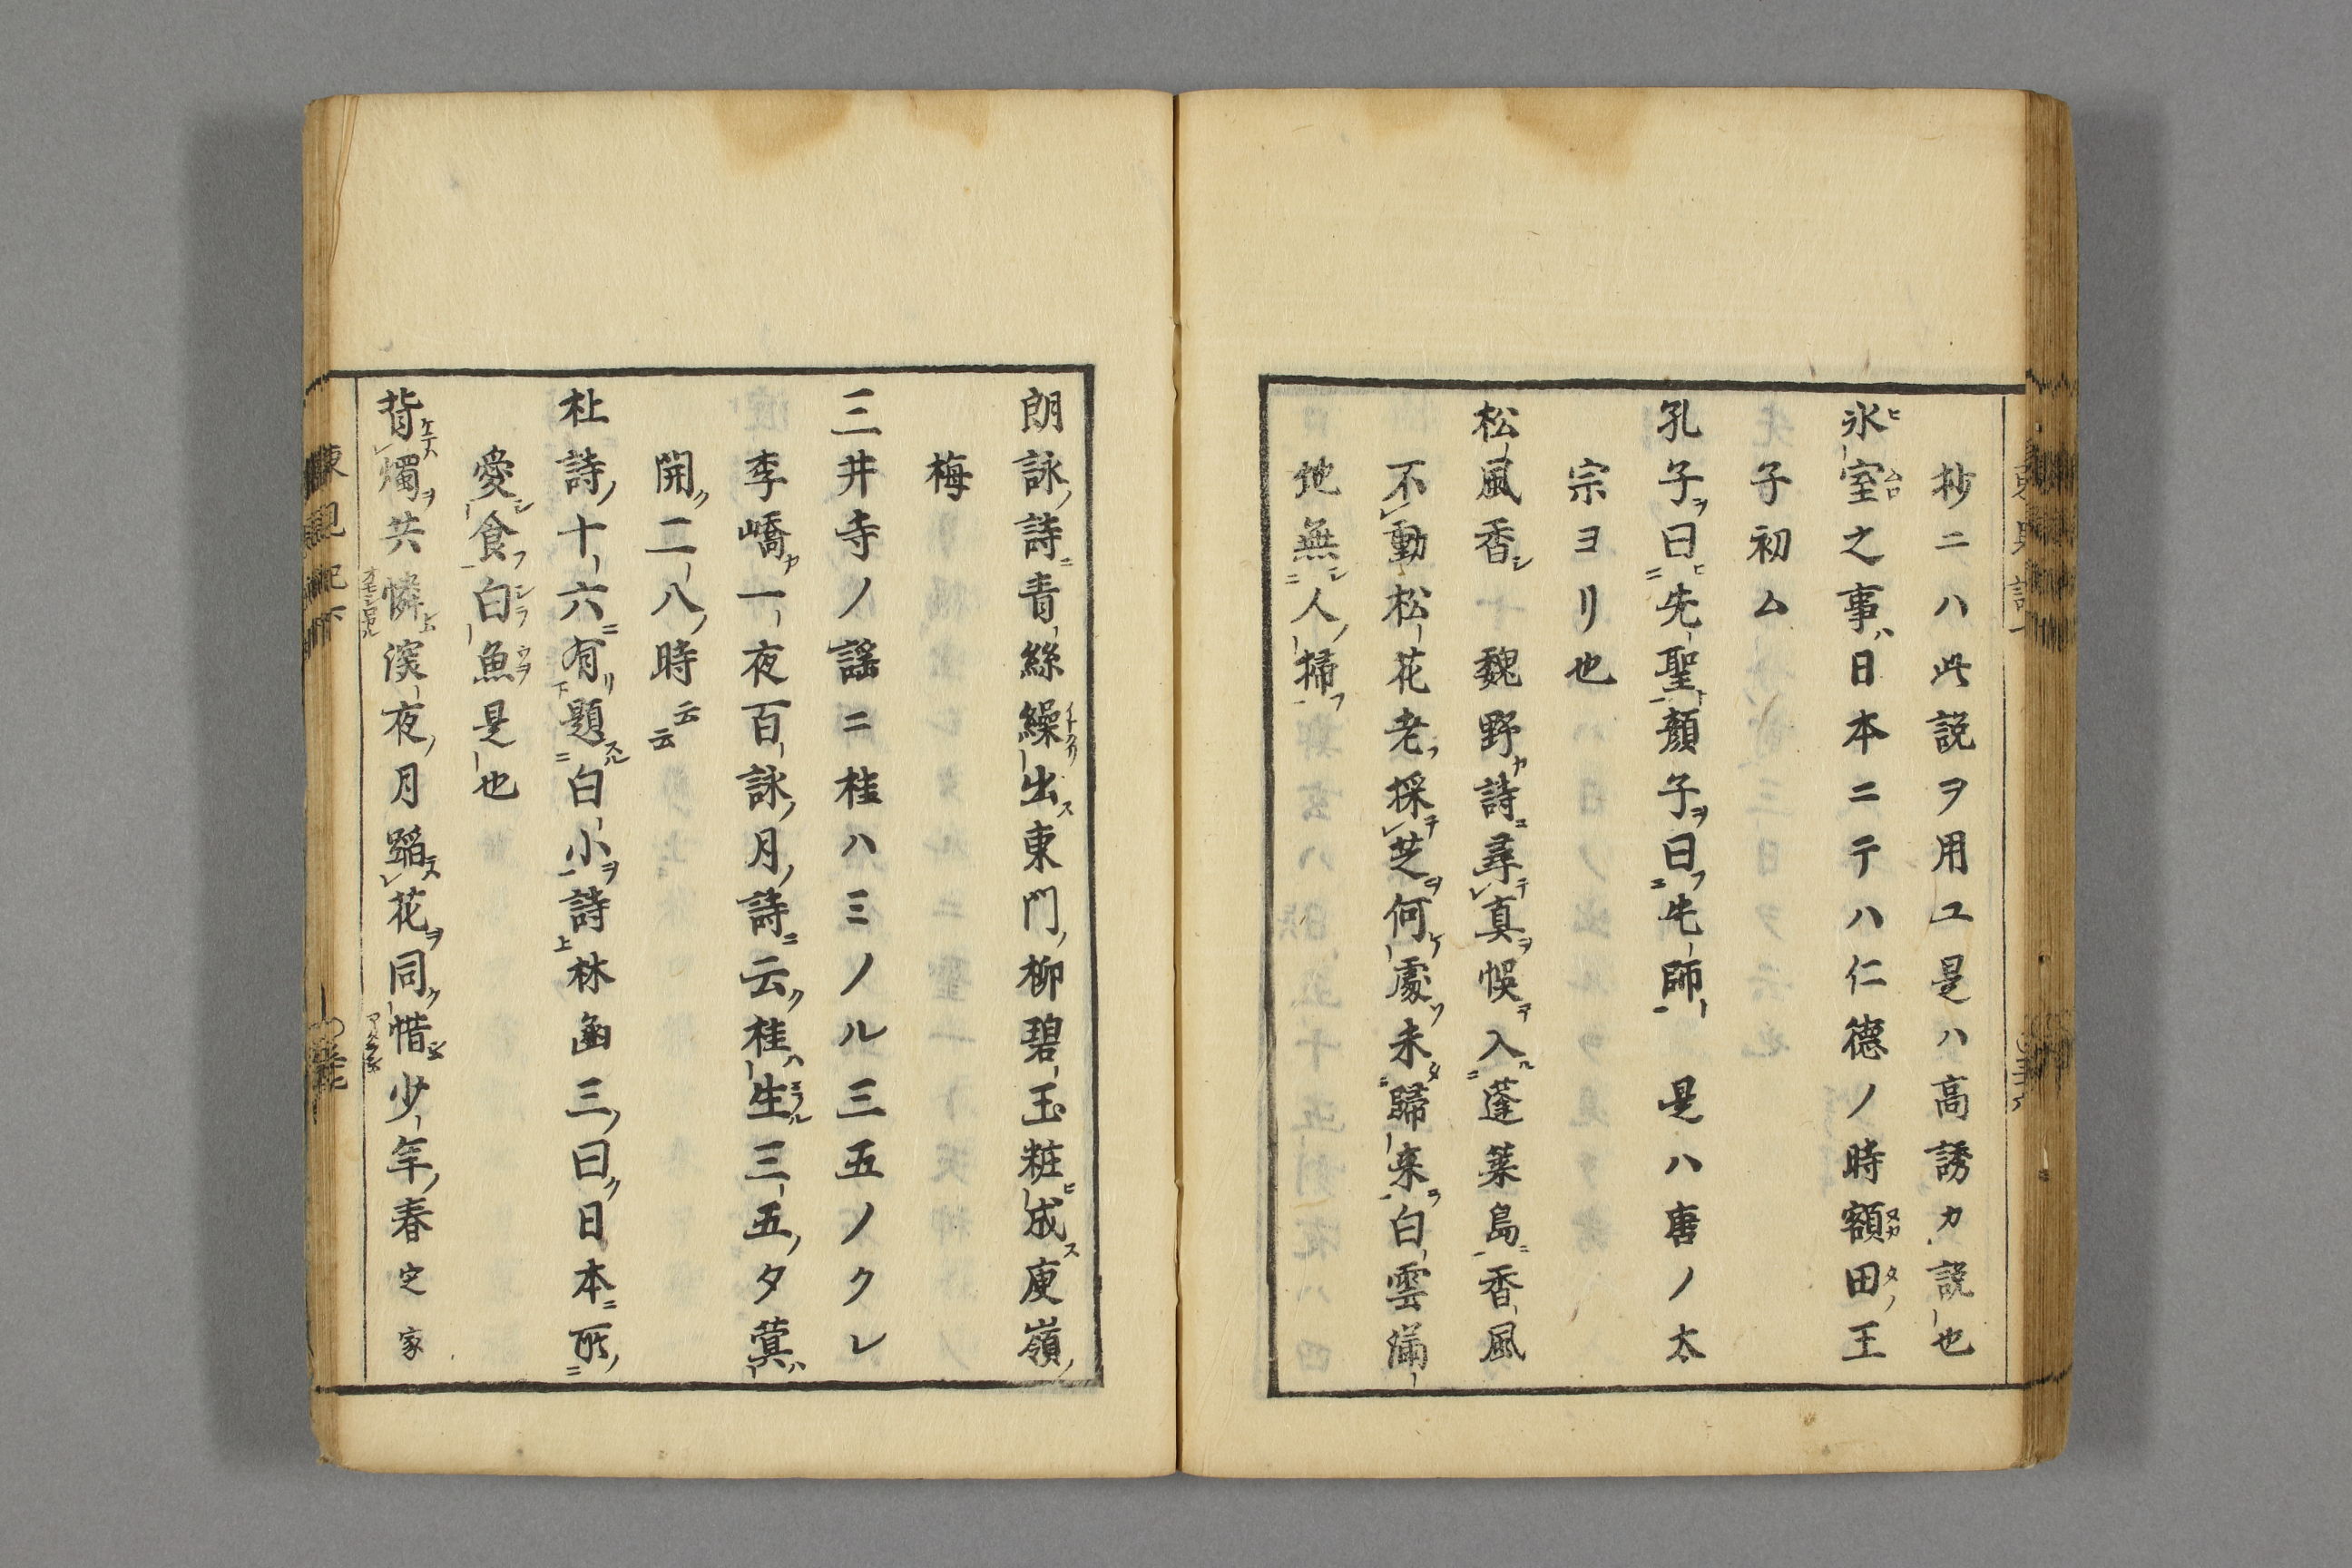 抄ニハ此説ヲ用ユ是ハ高誘カ説也
氷室之事ハ日本ニテハ仁德ノ時額田ノ王
子初ム
孔子ヲ曰ヒ先聖ト顏子ヲ曰フ先師ト 是ハ唐ノ太
宗ヨリ也
松風香シ 魏野カ詩ニ尋テ真ヲ悞ヲ入ル蓬萊島ニ香風
不動松花老フ採テ芝ヲ何ケ處ソ未タ歸來ラ白雲満
地無シ人ノ掃フ
朗詠ノ詩ニ青絲繰出ス東門ノ柳碧玉粧ヒ成ス庾嶺ノ
梅
三井寺ノ謡ニ桂ハミノル三五ノクレ
李嶠カ一夜百詠ノ月ノ詩ニ云ク桂ハ生ル三五ノ夕蓂ハ
開ク二八ノ時云云
杜詩ノ十六ニ有リ題スル白小ヲ詩林凾三ノ曰ク日本ニ所ノ
愛シ食フ白魚是也
背ケテハ燭ヲ共憐上深夜ノ月蹈テハ花ヲ同ク惜ム少年ノ春定家